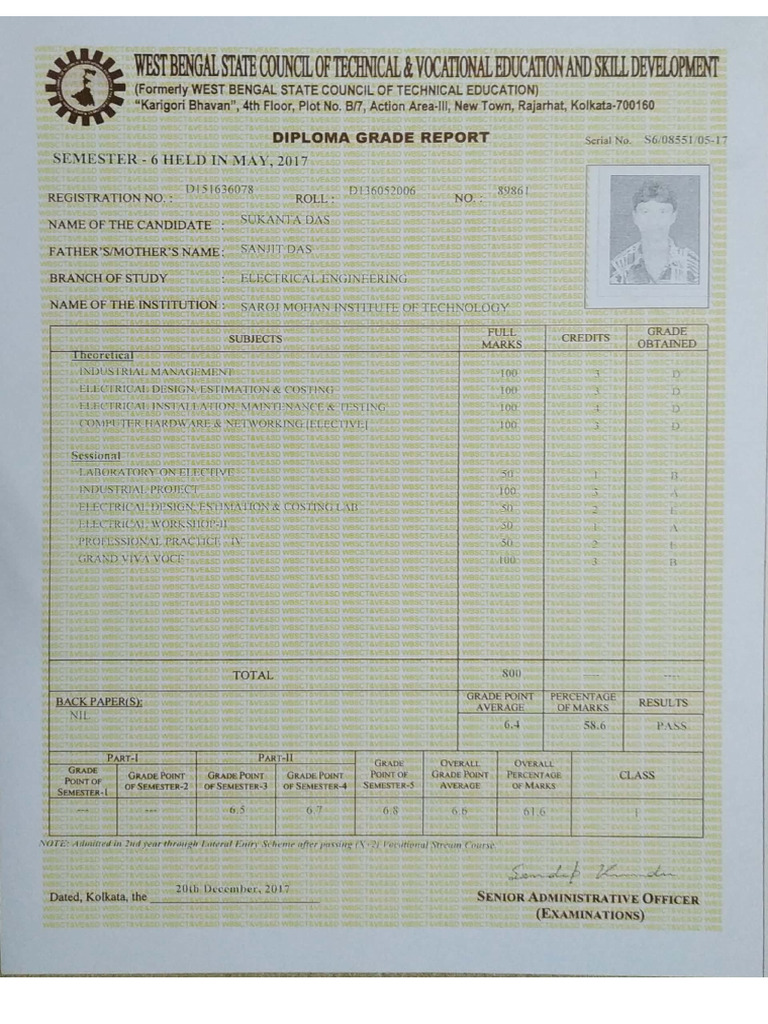 WEST BENGAL STATE COUNCIL OF TECHNICAL & VOCATIONAL EDUCATION AND SKILL DEVELOPMENT
(Formerly WEST BENGAL STATE COUNCIL OF TECHNICAL EDUCATION)
"Karigori Bhavan", 4th Floor, Plot No. B/7, Action Area-III, New Town, Rajarhat, Kolkata-700160
DIPLOMA GRADE REPORT
Serial No. S6/08551/05-17
SEMESTER - 6 HELD IN MAY, 2017
REGISTRATION NO. : D151636078 ROLL : D136052006 NO. : 89861
NAME OF THE CANDIDATE : SUKANTA DAS
FATHER'S/MOTHER'S NAME : SANJIT DAS
BRANCH OF STUDY : ELECTRICAL ENGINEERING
NAME OF THE INSTITUTION : SAROJ MOHAN INSTITUTE OF TECHNOLOGY
SUBJECTS FULL MARKS CREDITS GRADE OBTAINED
Theoretical
INDUSTRIAL MANAGEMENT 100 3 D
ELECTRICAL DESIGN, ESTIMATION & COSTING 100 3 D
ELECTRICAL INSTALLATION, MAINTENANCE & TESTING 100 4 D
COMPUTER HARDWARE & NETWORKING [ELECTIVE] 100 3 D
Sessional
LABORATORY ON ELECTIVE 50 1 B
INDUSTRIAL PROJECT 100 3 A
ELECTRICAL DESIGN, ESTIMATION & COSTING LAB 50 2 E
ELECTRICAL WORKSHOP-II 50 1 A
PROFESSIONAL PRACTICE - IV 50 2 E
GRAND VIVA VOCE 100 3 B
TOTAL 800 ---- ----
BACK PAPER(S): GRADE POINT AVERAGE PERCENTAGE OF MARKS RESULTS
NIL 6.4 58.6 PASS
PART-I PART-II
GRADE POINT OF SEMESTER-1 GRADE POINT OF SEMESTER-2 GRADE POINT OF SEMESTER-3 GRADE POINT OF SEMESTER-4 GRADE POINT OF SEMESTER-5 OVERALL GRADE POINT AVERAGE OVERALL PERCENTAGE OF MARKS CLASS
--- --- 6.5 6.7 6.8 6.6 61.6 I
NOTE: Admitted in 2nd year through Lateral Entry Scheme after passing (X+2) Vocational Stream Course.
Sandip Kundu
Dated, Kolkata, the 20th December, 2017
SENIOR ADMINISTRATIVE OFFICER
(EXAMINATIONS)